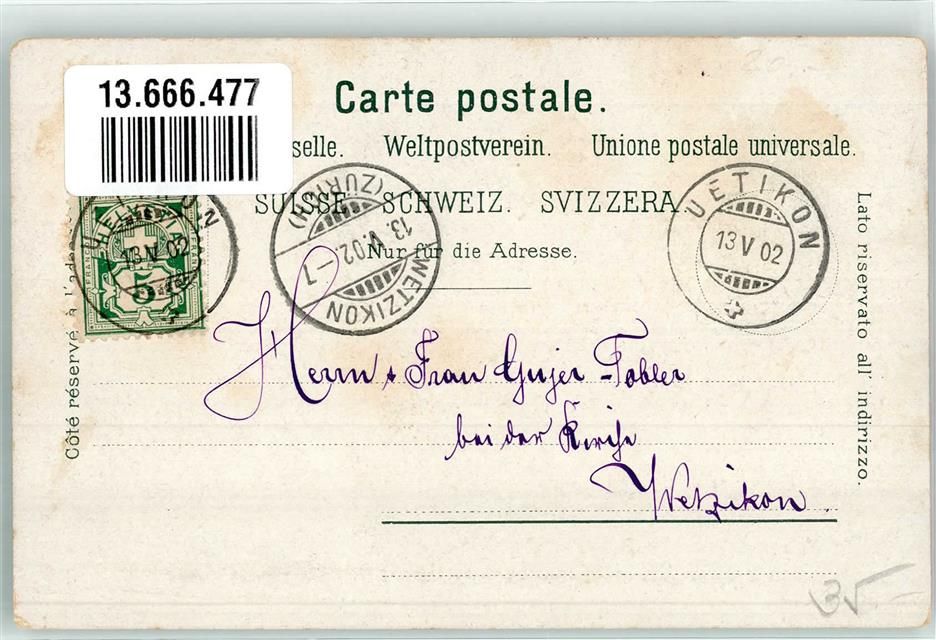 13.666.477
Carte postale.
selle. Weltpostverein. Unione postale universale.
SUISSE. SCHWEIZ. SVIZZERA.
Nur für die Adresse.
Côté réservé à l'adre
Lato riservato all' indirizzo.
UETIKON
13 V 02
5
WETZIKON (ZÜRICH)
13. V. 02. – 7
UETIKON
13 V 02
Herrn & Frau Gujer-Tobler
bei der Kirche
Wetzikon.
35 –